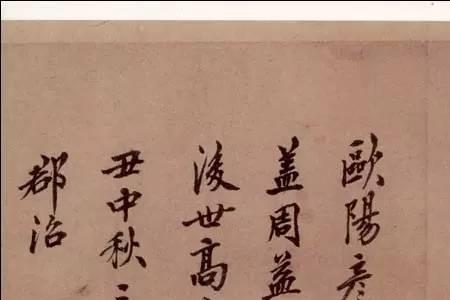 歐陽彥
蓋周益
後世高
丑中秋二
郡治